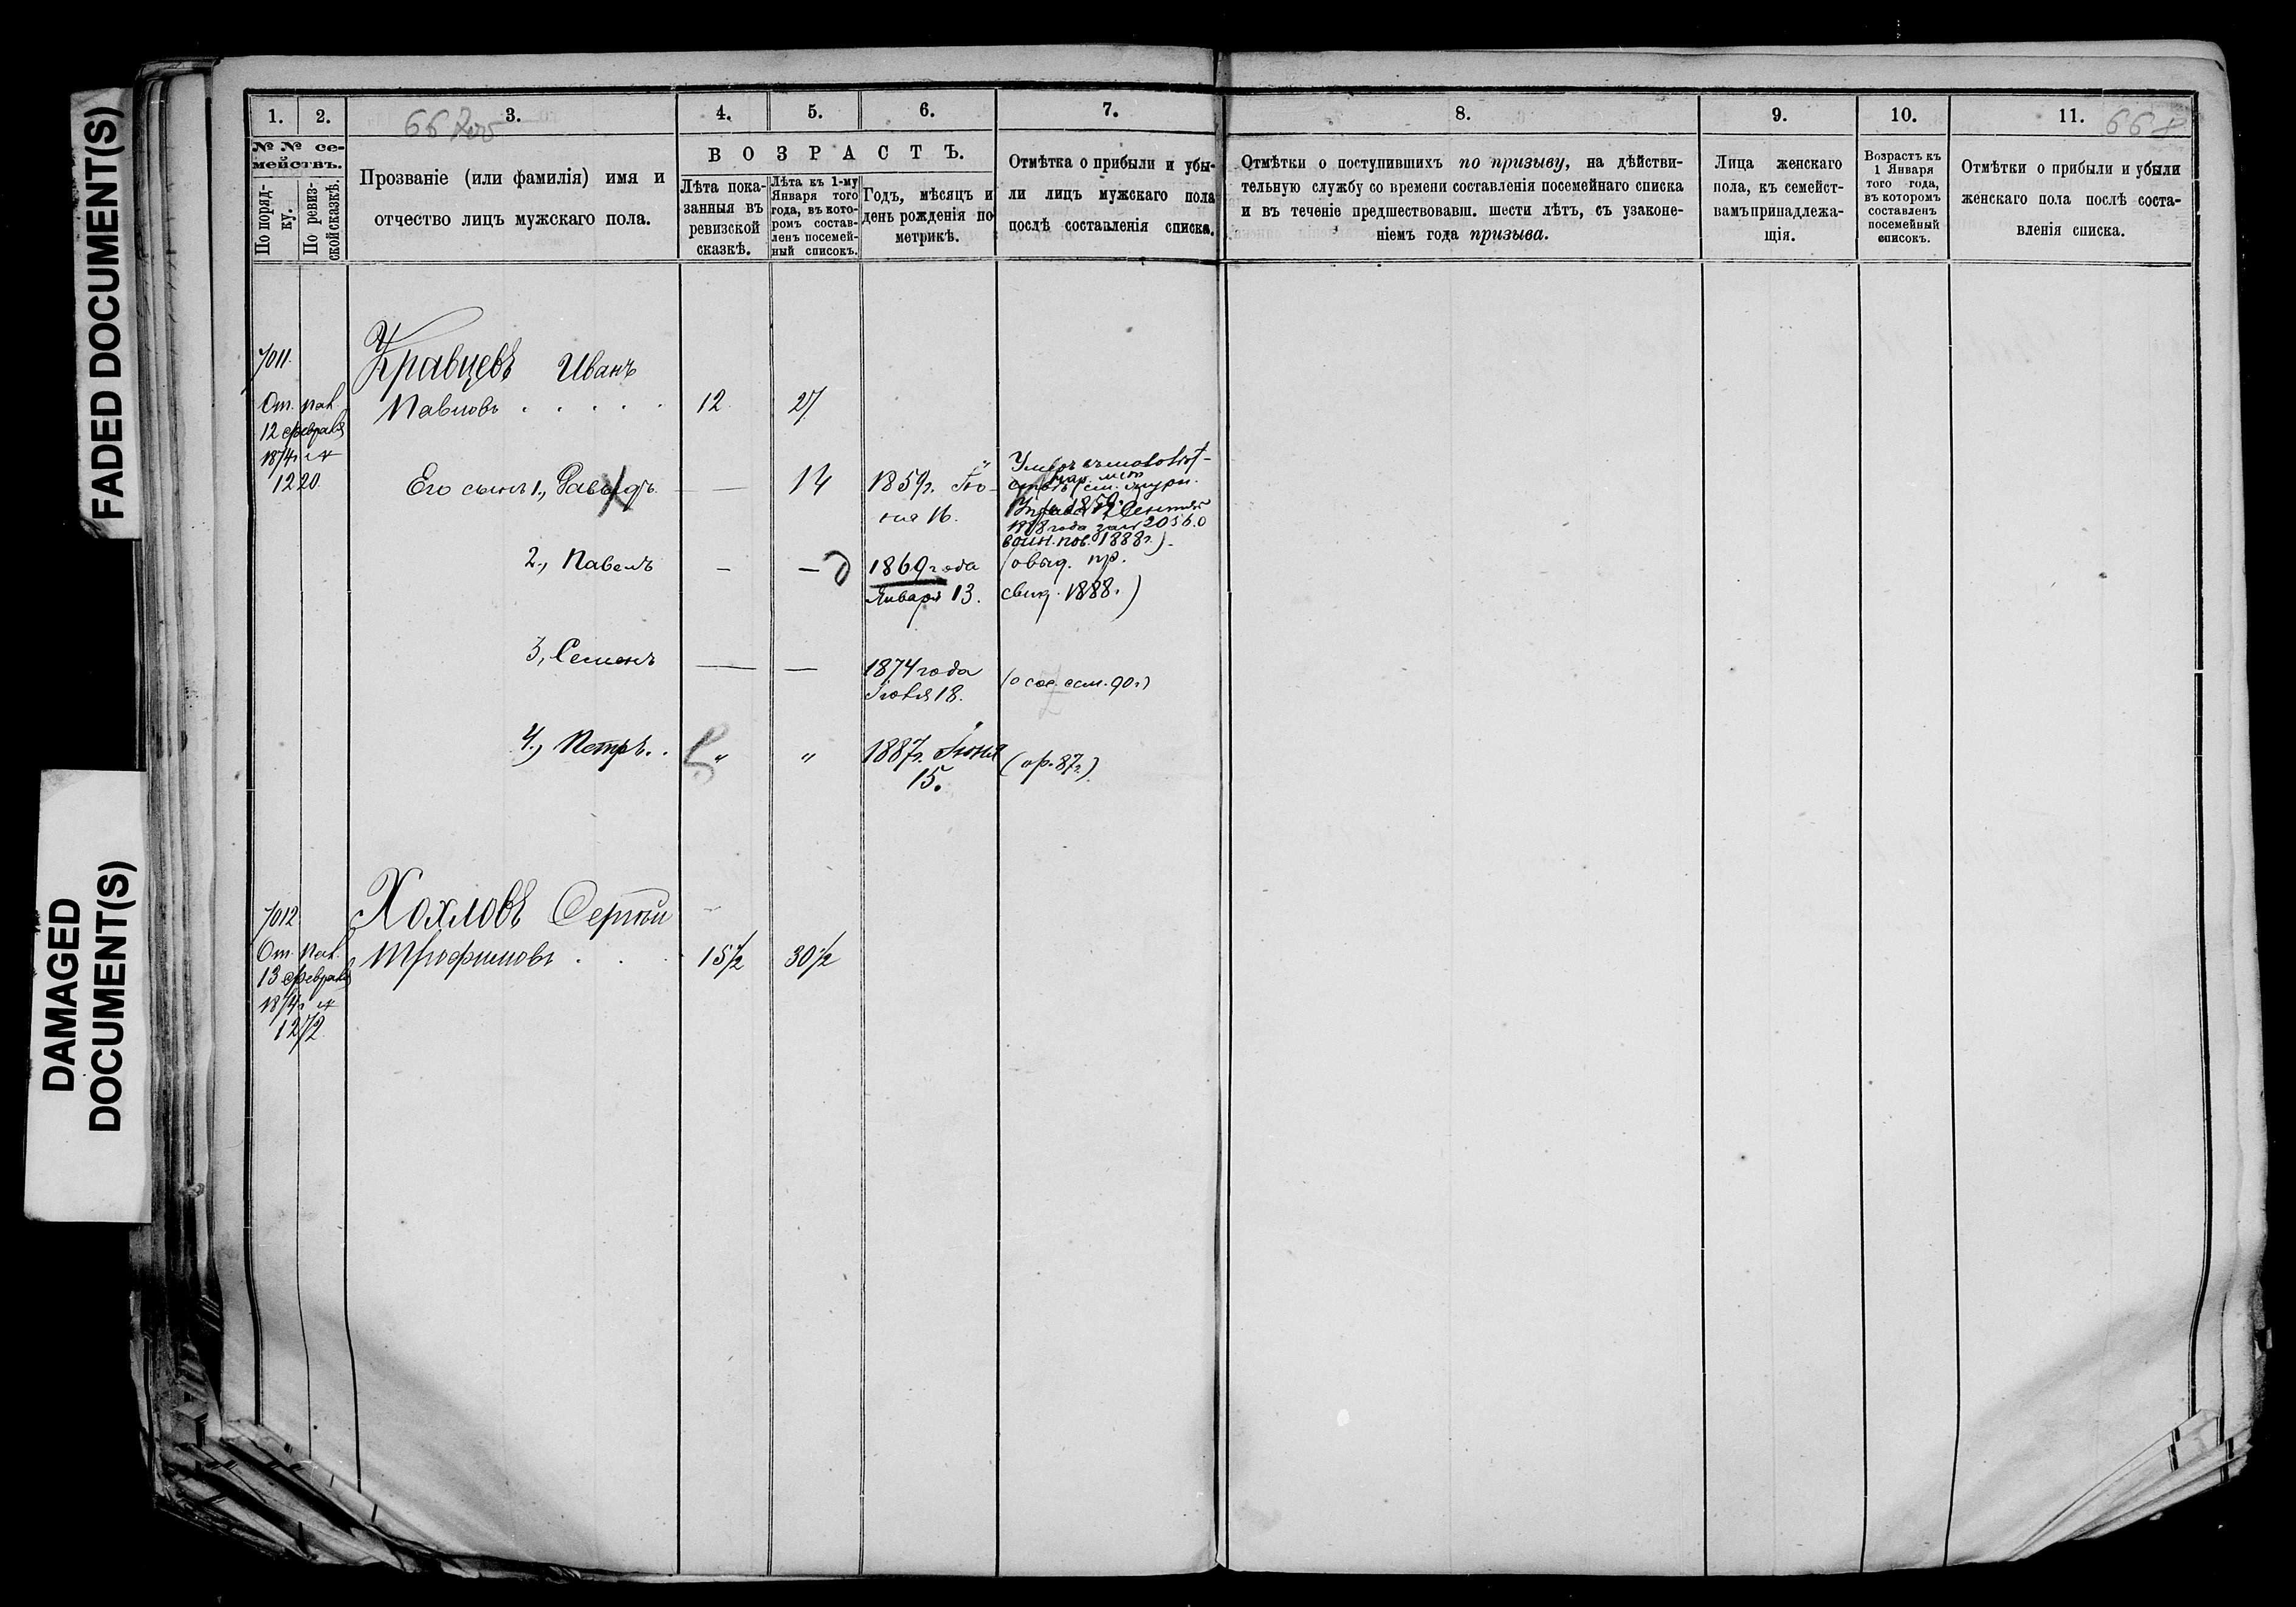 FADED DOCUMENT(S)
DAMAGED
DOCUMENT(S)
1. 2. 3. 4. 5. 6. 7. 8. 9. 10. 11.
66
66
№ № се-
мействъ.
По поряд-
ку.
По ревиз-
ской сказкѣ.
Прозваніе (или фамилія) имя и
отчество лицъ мужскаго пола.
ВОЗРАСТЪ.
Лѣта пока-
занныя въ
ревизской
сказкѣ.
Лѣта къ 1-му
Января того
года, въ кото-
ромъ состав-
ленъ посемей-
ный списокъ.
Годъ, мѣсяцъ и
день рожденія по
метрикѣ.
Отмѣтка о прибыли и убы-
ли лицъ мужскаго пола
послѣ составленія списка.
Отмѣтки о поступившихъ по призыву, на дѣйстви-
тельную службу со времени составленія посемейнаго списка
и въ теченіе предшествовавш. шести лѣтъ, съ узаконе-
ніемъ года призыва.
Лица женскаго
пола, къ семейст-
вамъ принадлежа-
щія.
Возрастъ къ
1 Января
того года,
въ которомъ
составленъ
посемейный
списокъ.
Отмѣтки о прибыли и убыли
женскаго пола послѣ соста-
вленія списка.
7011.
От. пал.
12 февраля
1874г. №
1220.
Кравцевъ Иванъ
Павловъ . . . . . 12. 27
Его сынъ 1., Давыдъ — 14 1859г. Iю-
ня 16.
1888 года за № 2056.
воин. пов. 1888г.).
2., Павелъ — — 1869 года
Января 13.
свид. 1888г.)
3, Семенъ — — 1874 года
18.
90г.)
4., Петръ . . „ „ 1887г. Iюня
15.
(ор. 87г.)
7012
От. пал.
13 февраля
1874г. №
1272.
Хохловъ Сергѣй
Трофимовъ . . . 15½ 30½